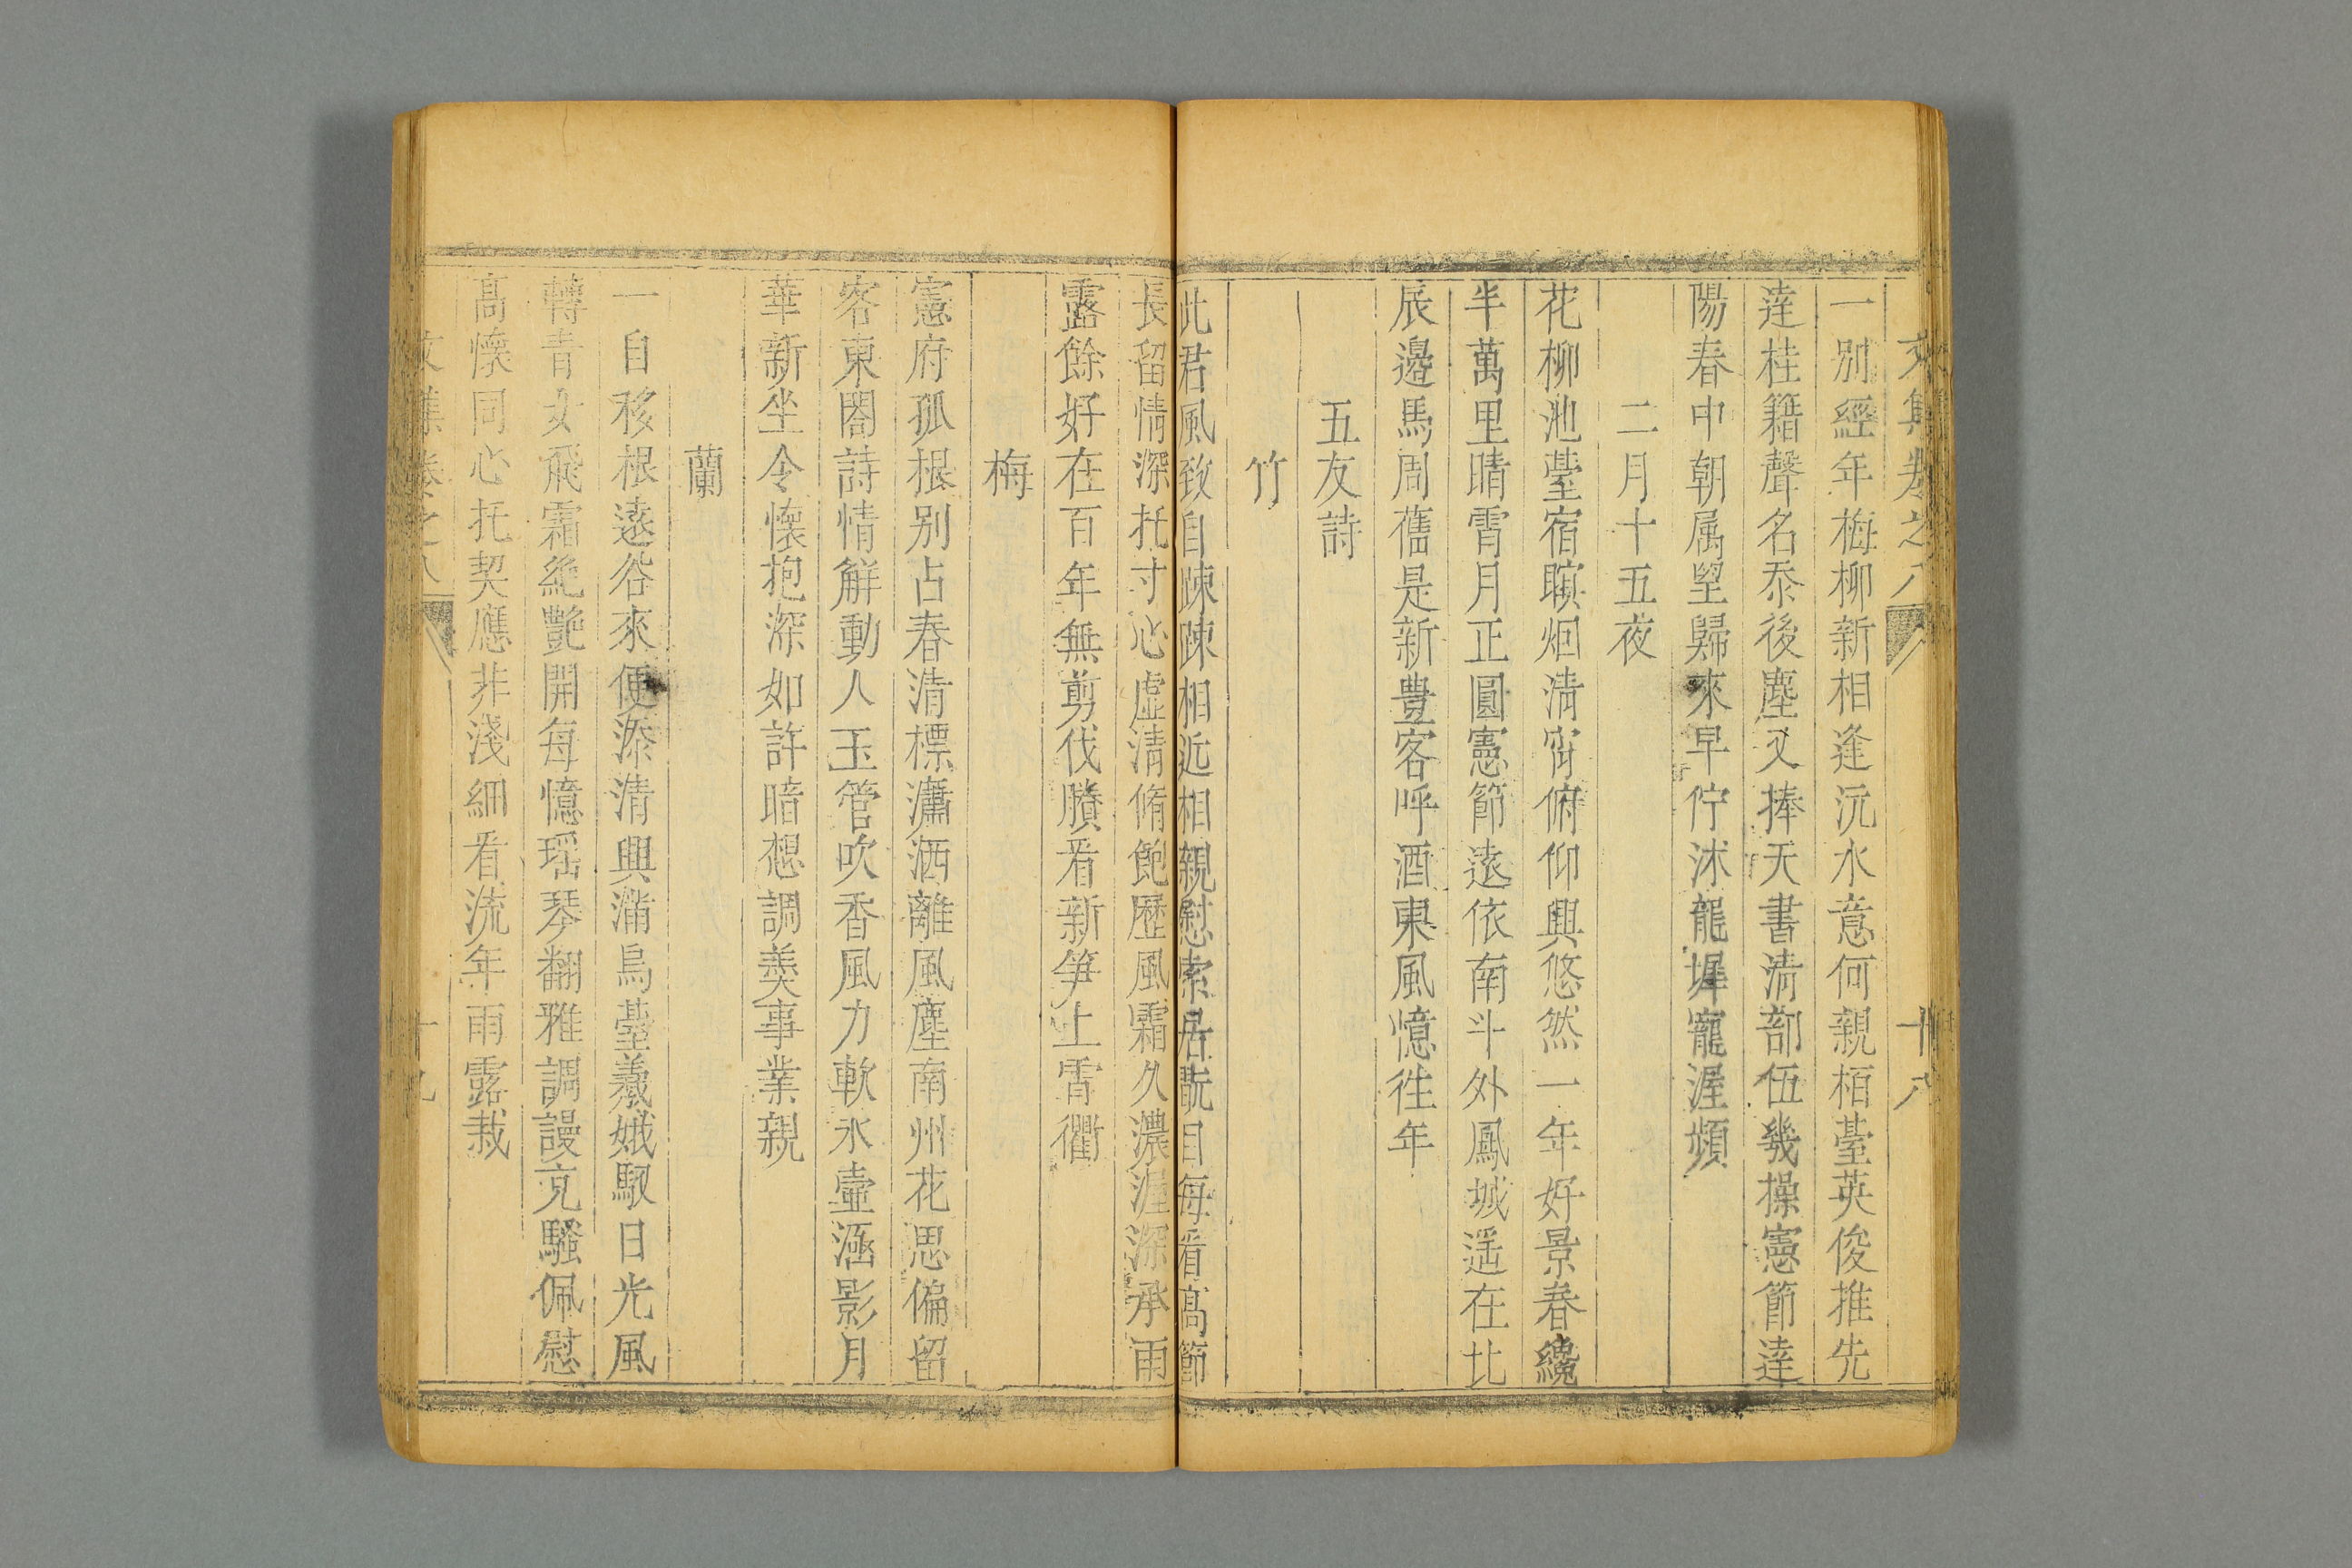 文集卷之八 十八
一別經年梅柳新相逢沅水意何親栢臺英俊推先
達桂籍聲名忝後塵又捧天書清部伍幾操憲節達
陽春中朝属望歸來早佇沐龍墀寵渥頻
二月十五夜
花柳池臺宿暝烟清宵俯仰興悠然一年好景春纔
半萬里晴霄月正圓憲節遠依南斗外鳳城遥在北
辰邊馬周舊是新豊客呼酒東風憶徃年
五友詩
竹
此君風致自踈踈相近相親慰索居翫目每看高節
長留情深托寸心虛清脩飽歷風霜久濃渥深承雨
露餘好在百年無剪伐賸看新笋上霄衢
梅
憲府孤根别占春清標瀟洒離風塵南州花思偏留
客東閣詩情觧動人玉管吹香風力軟氷壷涵影月
華新坐令懷抱深如許暗想調羹事業親
蘭
一自移根遠谷來便添清興滿烏臺羲娥馭日光風
轉青女飛霜絶艷開每憶瑶琴翻雅調謾充騷佩慰
高懷同心托契應非淺細看流年雨露栽
文集卷之八 十九